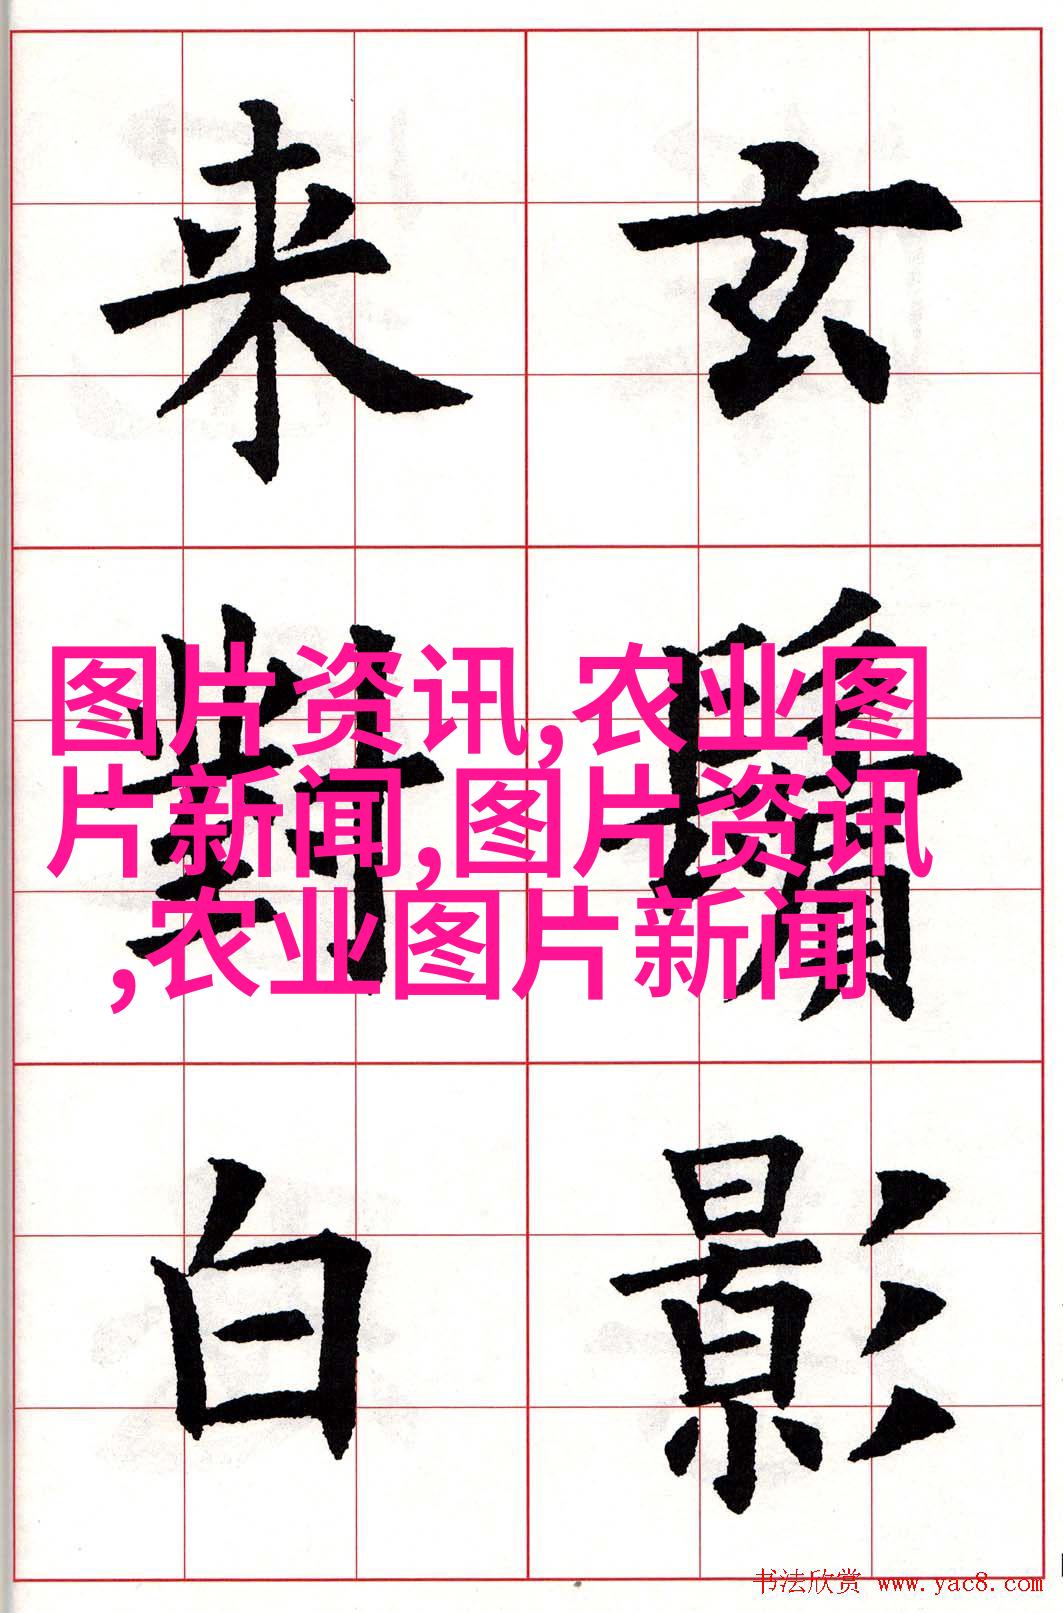 玄鬢影
来對白
图片资讯,农业图
片新闻,图片资讯
,农业图片新闻
书法欣赏 www.yac8.com